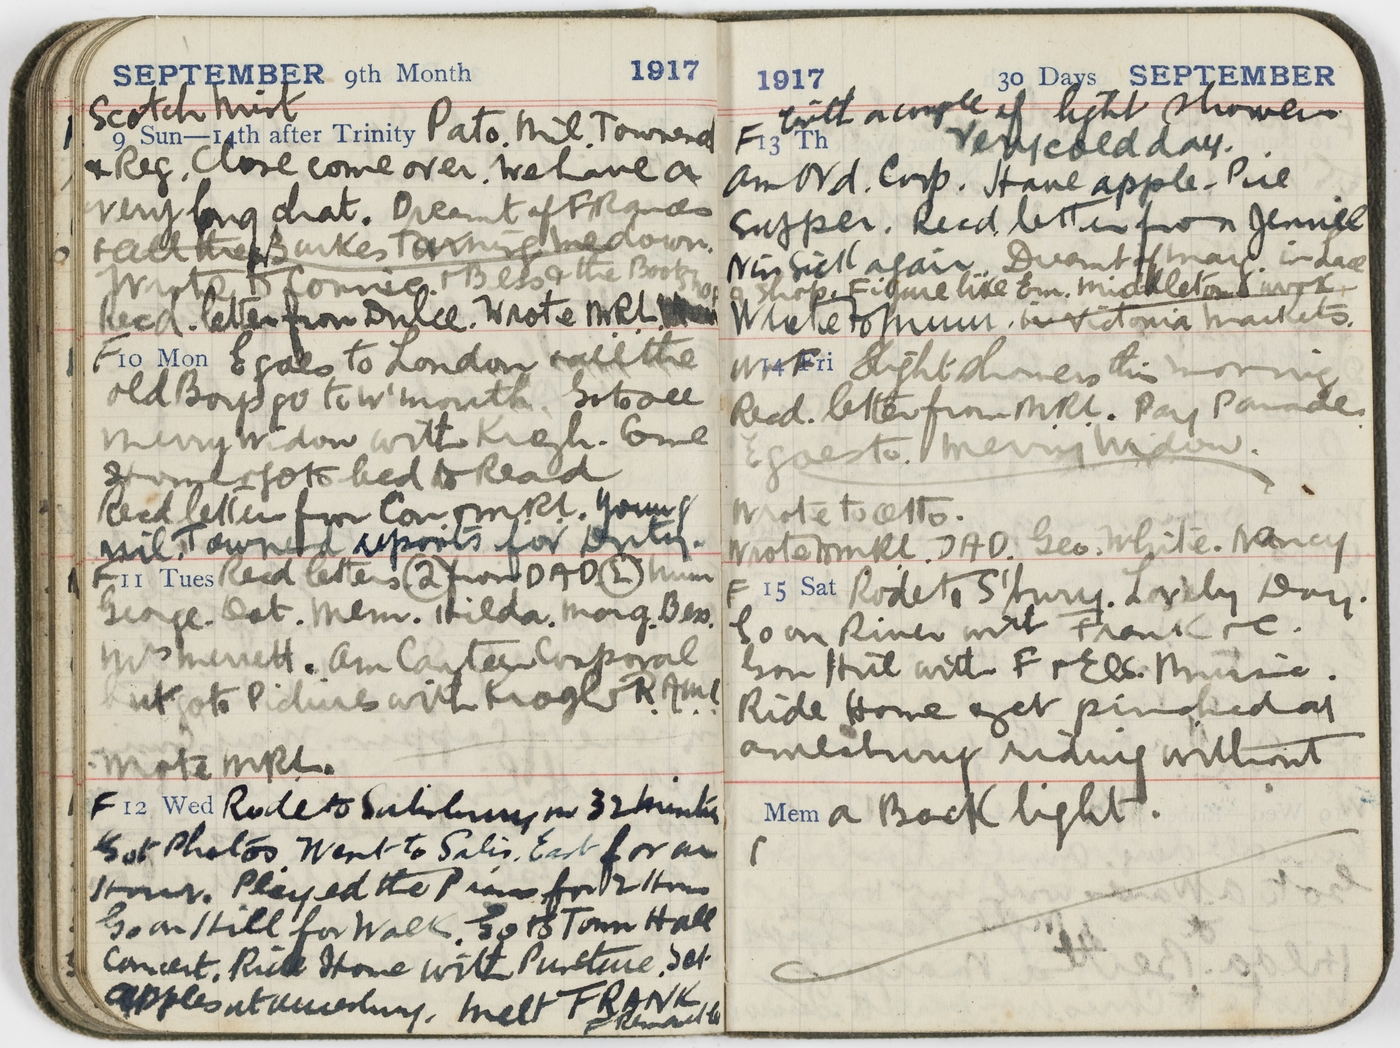 SEPTEMBER 9th Month 1917
Scotch Mist
9 Sun—14th after Trinity Pato. Mil. Townend
& Reg. Close come over. We have a
very long chat. Dreamt of
+ all the Burkes Turning me down.
Wrote to Connie. + Bess & the Book Shop
Recd. letter from Dulce. Wrote MRL.
F 10 Mon E goes to London + all the
old Boys go to W'mouth. Go to see
Merry Widow with Krogh. Come
Home + go to bed to Read
Recd letters from Con, MRL. Young
Mil. Townend reports for Duty.
F 11 Tues Recd letters (2) from DAD (2) Mum
George. Dot. Mem. Hilda. Marg. Bess.
Mrs Merrett. Am Canteen Corporal
but go to Pictures with Krogh + R.
Wrote MRL.
F 12 Wed Rode to Salisbury in 32 Minutes
Got Photos Went to Salis. East for an
Hour. Played the Piano for 2 Hours
Go on Hill for Walk. Go to Town Hall
Concert. Ride Home with Puncture. Get
apples at Amesbury. Melt FRANK

1917 30 Days SEPTEMBER
with a couple of light showers
F 13 Th Very cold day.
Am Ord. Corp. Have apple-Pie
Supper. Recd. letter from Jennie
Nin Sick again. Dreamt of Marg. in Lace
Shop. Figure like Em. Middleton's work +
Wrote to Mum. in Victoria Markets.
14 Fri Slight showers this morning
Recd. letter from MRL. Pay Parade.
E goes to. Merry Widow.
Wrote to Otto.
Wrote MRL. DAD. Geo. White. Nancy
F 15 Sat Rode to S'bury. Lovely Day.
Go on River with Frank + C.
Go on Hill with F + Els. Music.
Ride Home + get pinched at
Amesbury riding without
Mem a Back light.